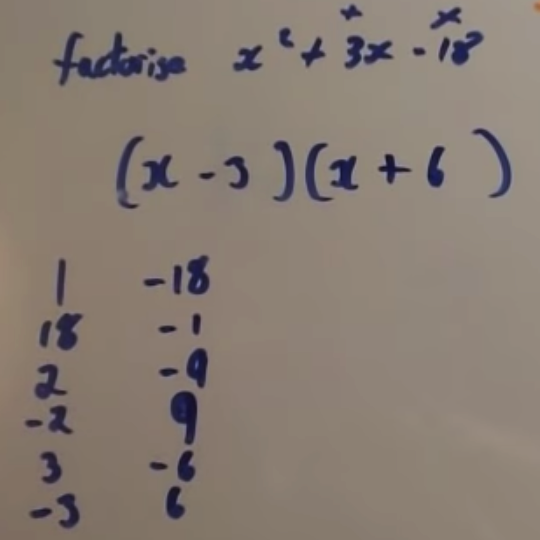 + ×
factorise x² + 3x - 18
(x - 3)(x + 6)
1 -18
18 -1
2 -9
-2 9
3 -6
-3 6